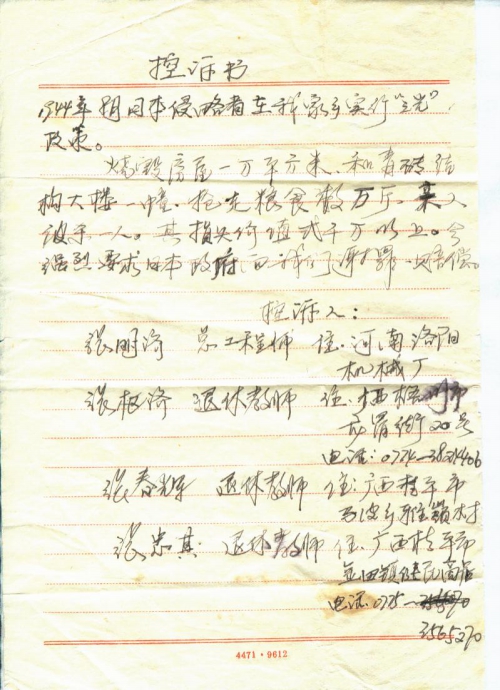 控诉书
1944年 月日本侵略者在我家乡实行"三光"
政策。
烧毁房屋一万平方米，和青砖结
构大楼一幢，抢走粮食数万斤，亲人
被杀一人。其损失价值贰千万以上。今
强烈要求日本政府向我们谢罪，赔偿。
控诉人：
张 济 总工程师 住：河南洛阳
机械厂
张 济 退休教师 住：广西梧州市
街20号
电话：0774-
张春 退休教师 住：广西桂平市
乡 村
张 其 退休教师 住：广西桂平市
金田镇
电话：0775—
3565270
4471·9612